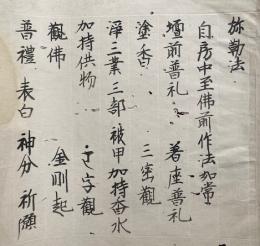 弥勒法
自房中至佛前作法如常
壇前普礼 着座普礼
塗香 三密觀
淨三業三部被甲加持香水
加持供物 字觀
觀佛 金剛起
普禮 表白 神分 祈願